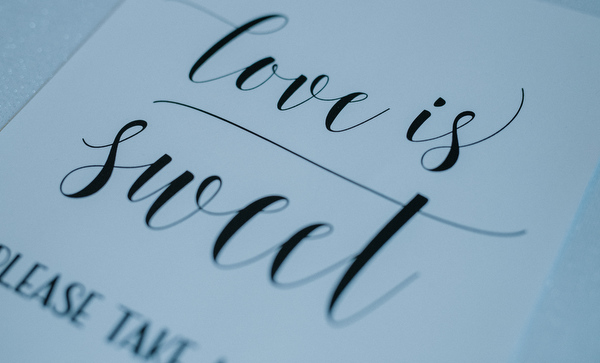 love is
sweet
PLEASE TAKE